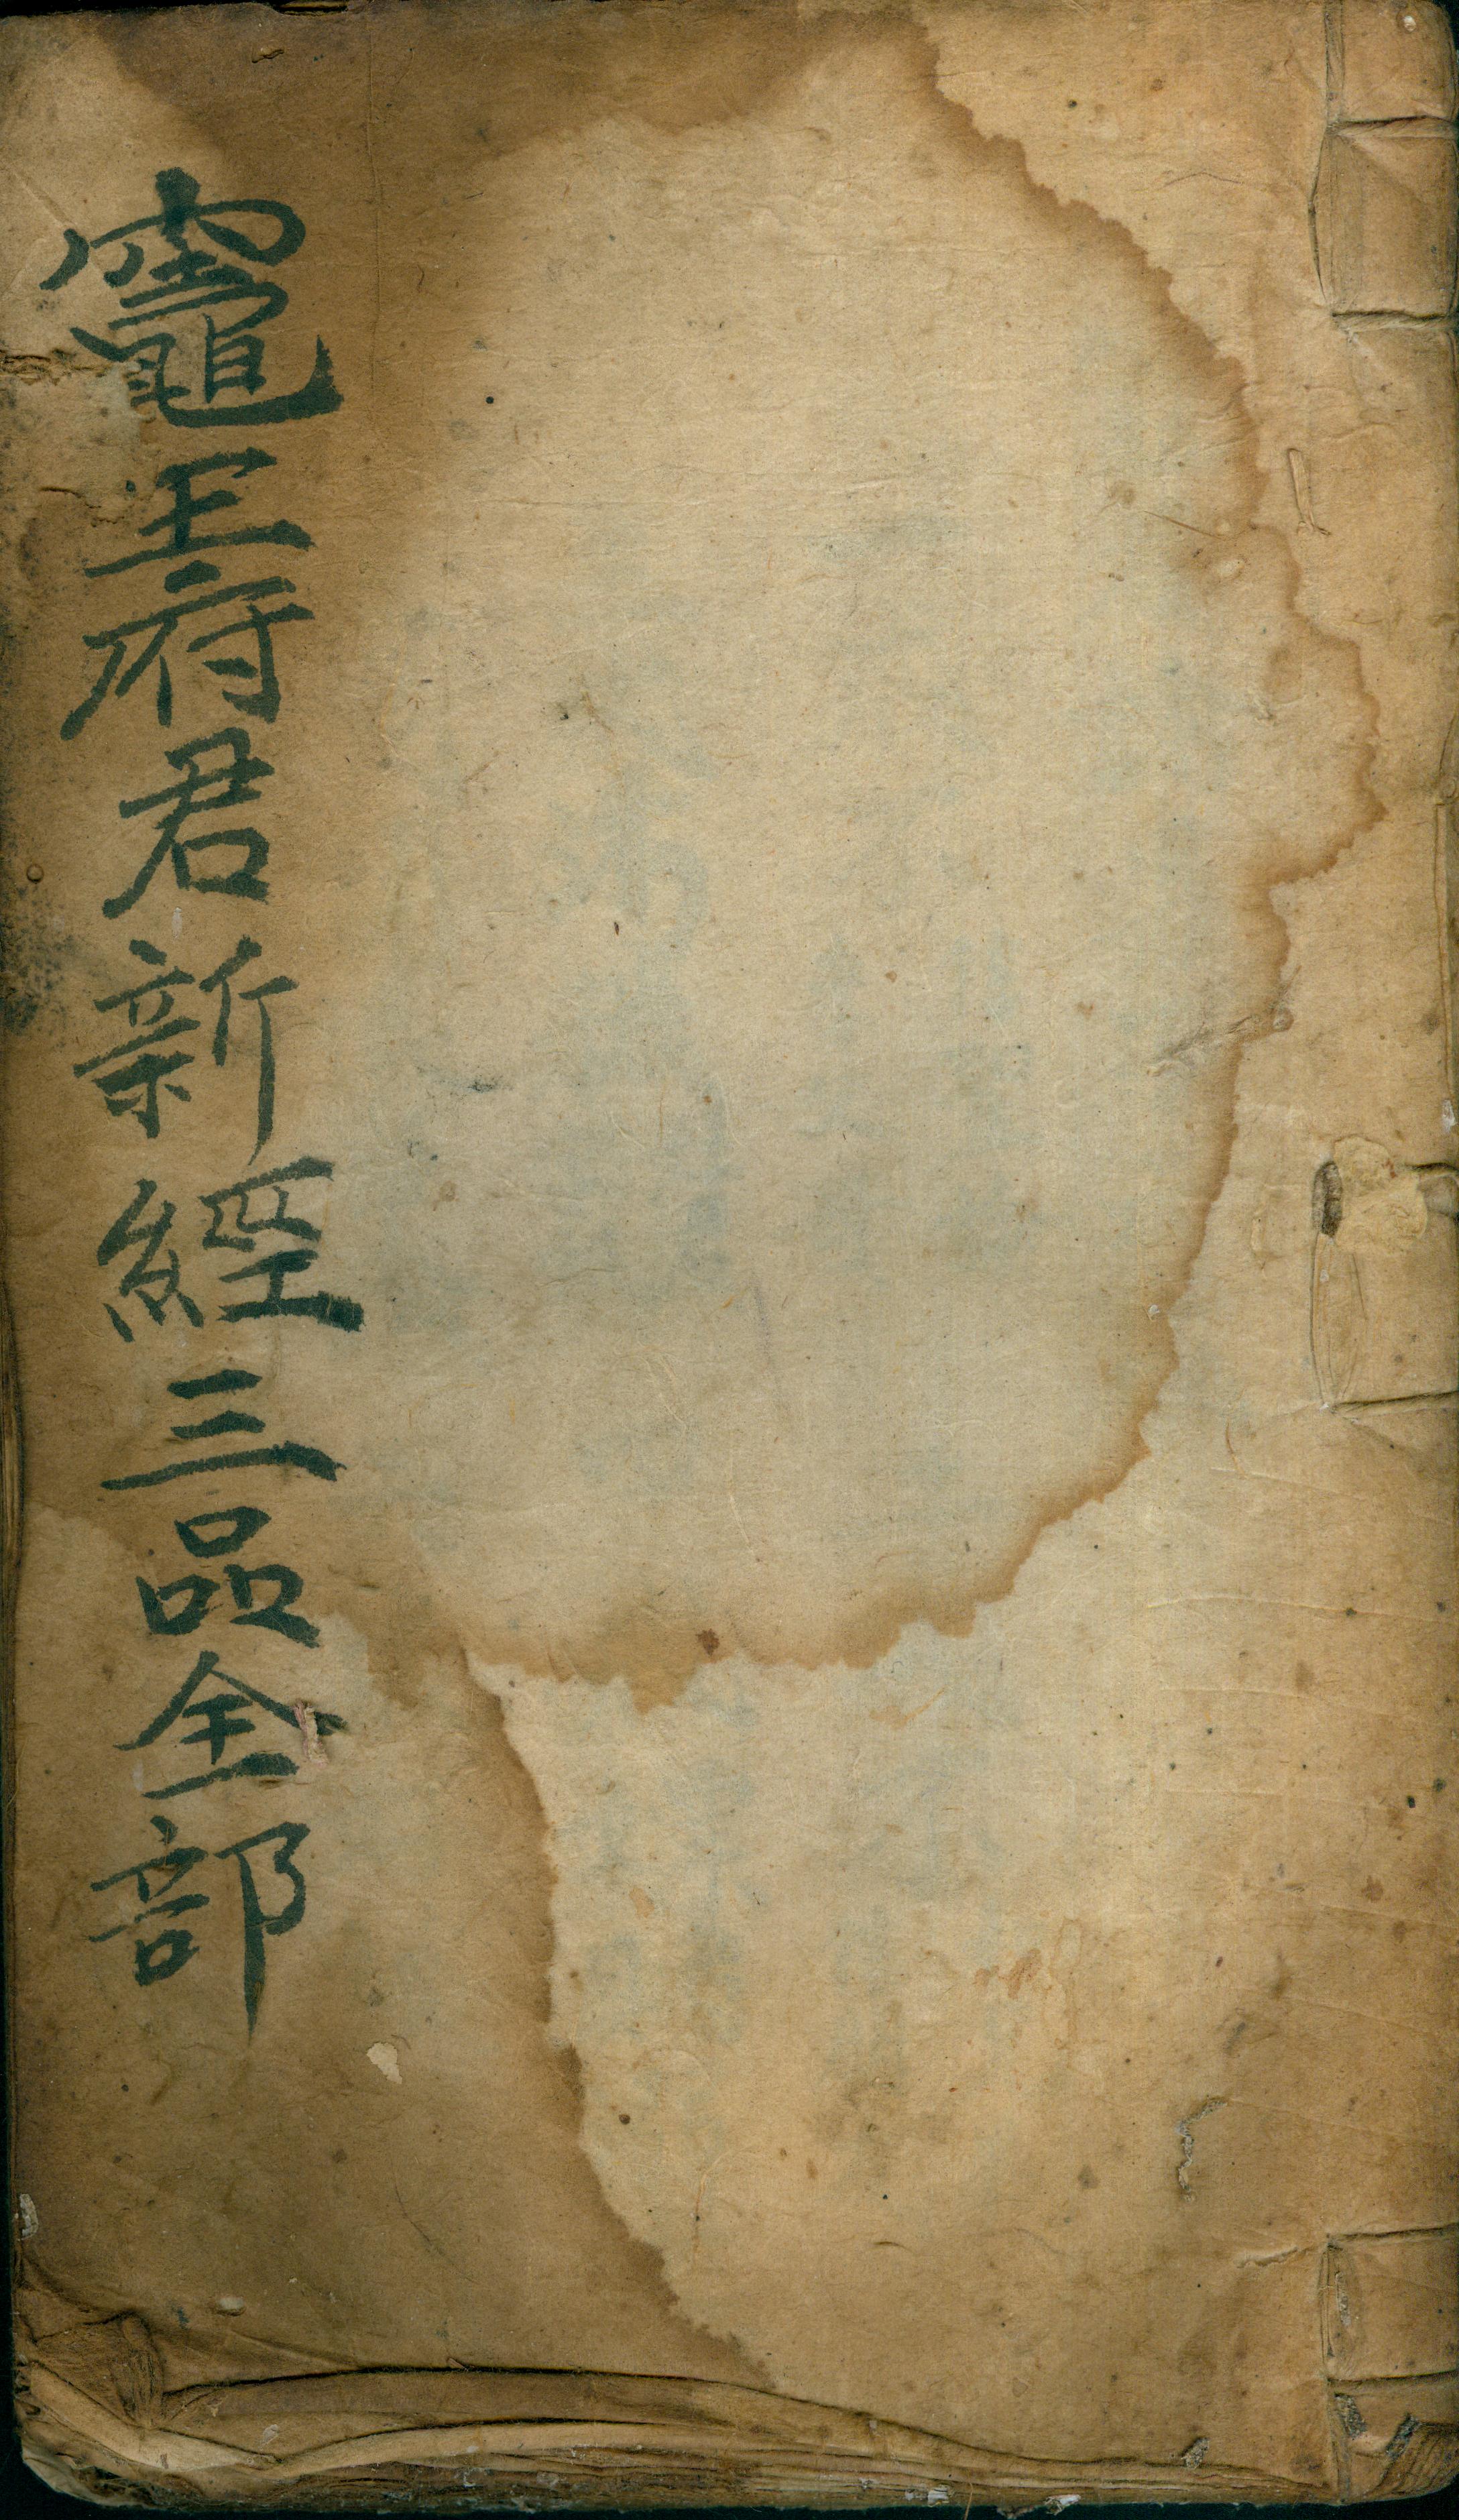 竈王府君新經三品全部